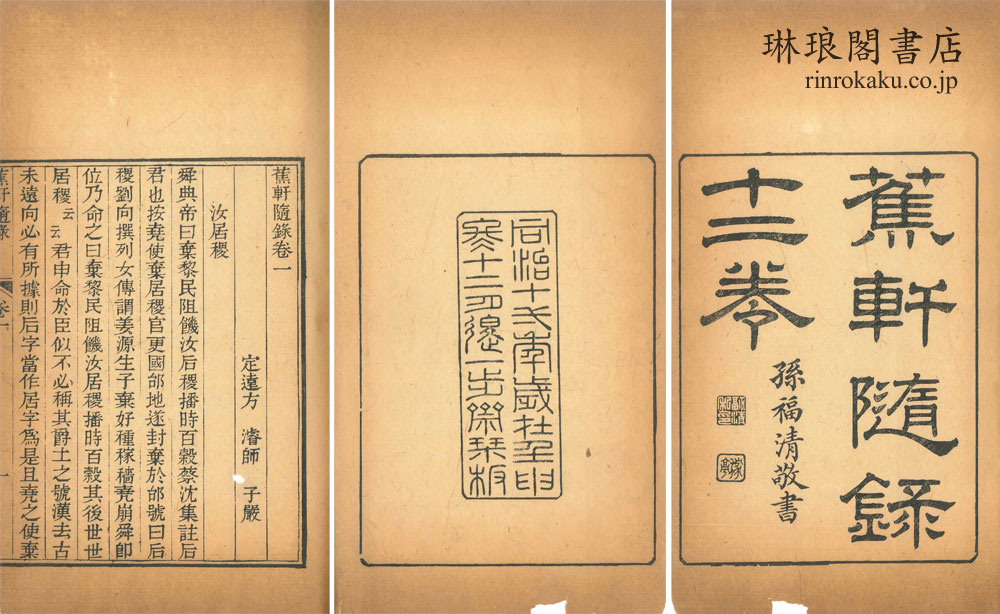 琳琅閣書店
rinrokaku.co.jp
蕉軒隨錄
十二卷
孫福清敬書
同治十弌年歲在壬申
冬十二月退一步齋栞板
蕉軒隨錄卷一
定遠方 濬師 子嚴
汝居稷
舜典帝曰棄黎民阻饑汝后稷播時百穀蔡沈集註后
君也按堯使棄居稷官更國邰地遂封棄於邰號曰后
稷劉向撰列女傳謂姜源生子棄好種稼穡堯崩舜卽
位乃命之曰棄黎民阻饑汝居稷播時百穀其後世世
居稷云云君申命於臣似不必稱其爵土之號漢去古
未遠向必有所據則后字當作居字爲是且堯之使棄
蕉軒隨錄 卷一 一